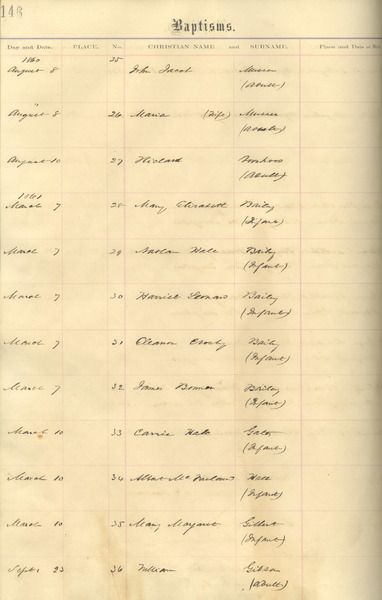 146
Baptisms.
Day and Date. PLACE. No. CHRISTIAN NAME and SURNAME. Place and Date of
1860
August 8 25 John Jacob
(Adult)
August 8 26 Maria (Wife)
(Adult)
August 10 27 Richard
(Adult)
1861
March 7 28 Mary Elizabeth Baily
(Infant)
March 7 29 Nathan Hale Baily
(Infant)
March 7 30 Harriet Leonard Baily
(Infant)
March 7 31 Eleanor Crosby Baily
(Infant)
March 7 32 James Bowman Baily
(Infant)
March 10 33 Carrie Hale
(Infant)
March 10 34 Albert McFarland Hale
(Infant)
March 10 35 Mary Margaret Gilbert
(Infant)
Sept. 23 36 William Gibson
(Adult)